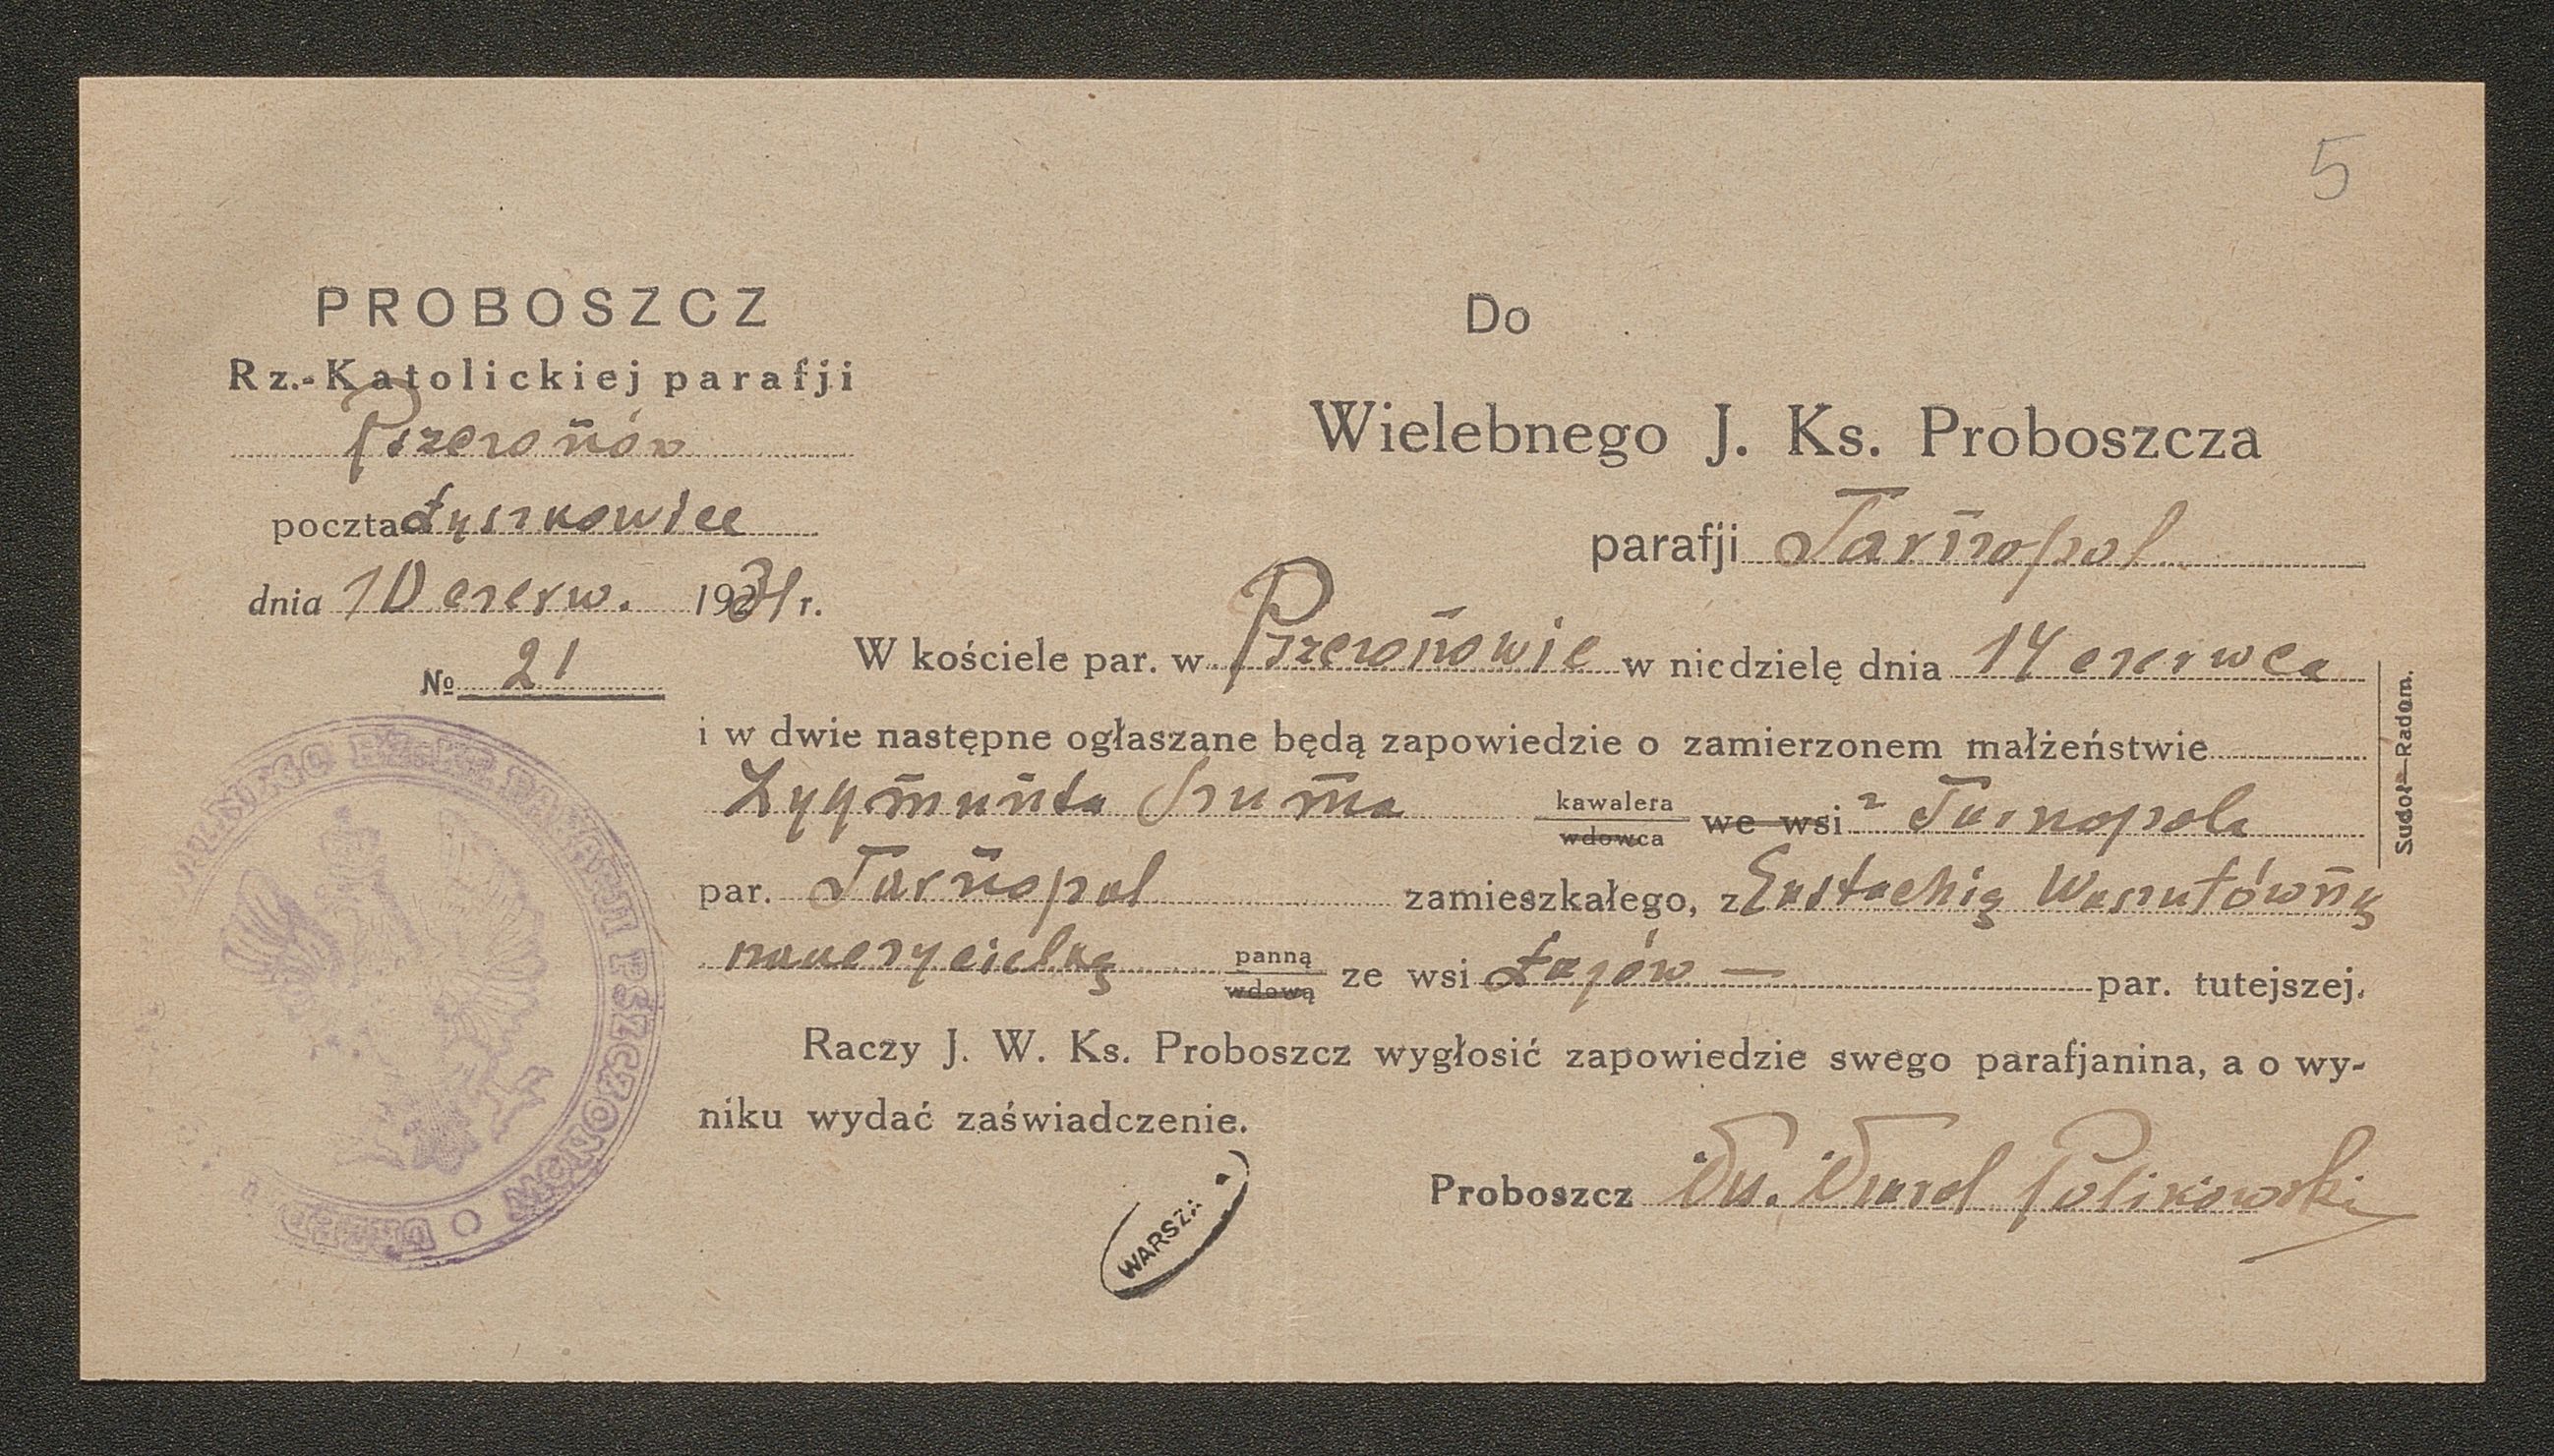 5
PROBOSZCZ
Rz.-Katolickiej parafji
Pszczonów
poczta Łyszkowice
dnia 10 czerw. 1931 r.
№ 21
Do
Wielebnego J. Ks. Proboszcza
parafji Tarnopol
W kościele par. w Pszczonowie w niedzielę dnia 14 czerwca
i w dwie następne ogłaszane będą zapowiedzie o zamierzonem małżeństwie
Zygmunta Szuma kawalera wdowca we wsi z Tarnopola
par. Tarnopol zamieszkałego, z Eustachią
nauczycielką panną wdową ze wsi Łajów — par. tutejszej.
Raczy J. W. Ks. Proboszcz wygłosić zapowiedzie swego parafjanina, a o wy-
niku wydać zaświadczenie.
Proboszcz Ks.
Sudoł—Radom.
RZ.-KAT. PARAFJI PSZCZONÓW O URZĘD
WARSZA